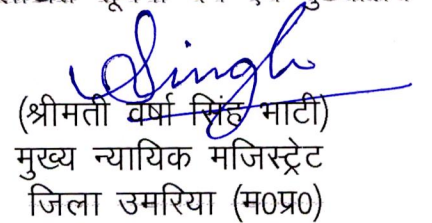 Singh
(श्रीमती वर्षा सिंह भाटी)
मुख्य न्यायिक मजिस्ट्रेट
जिला उमरिया (म0प्र0)